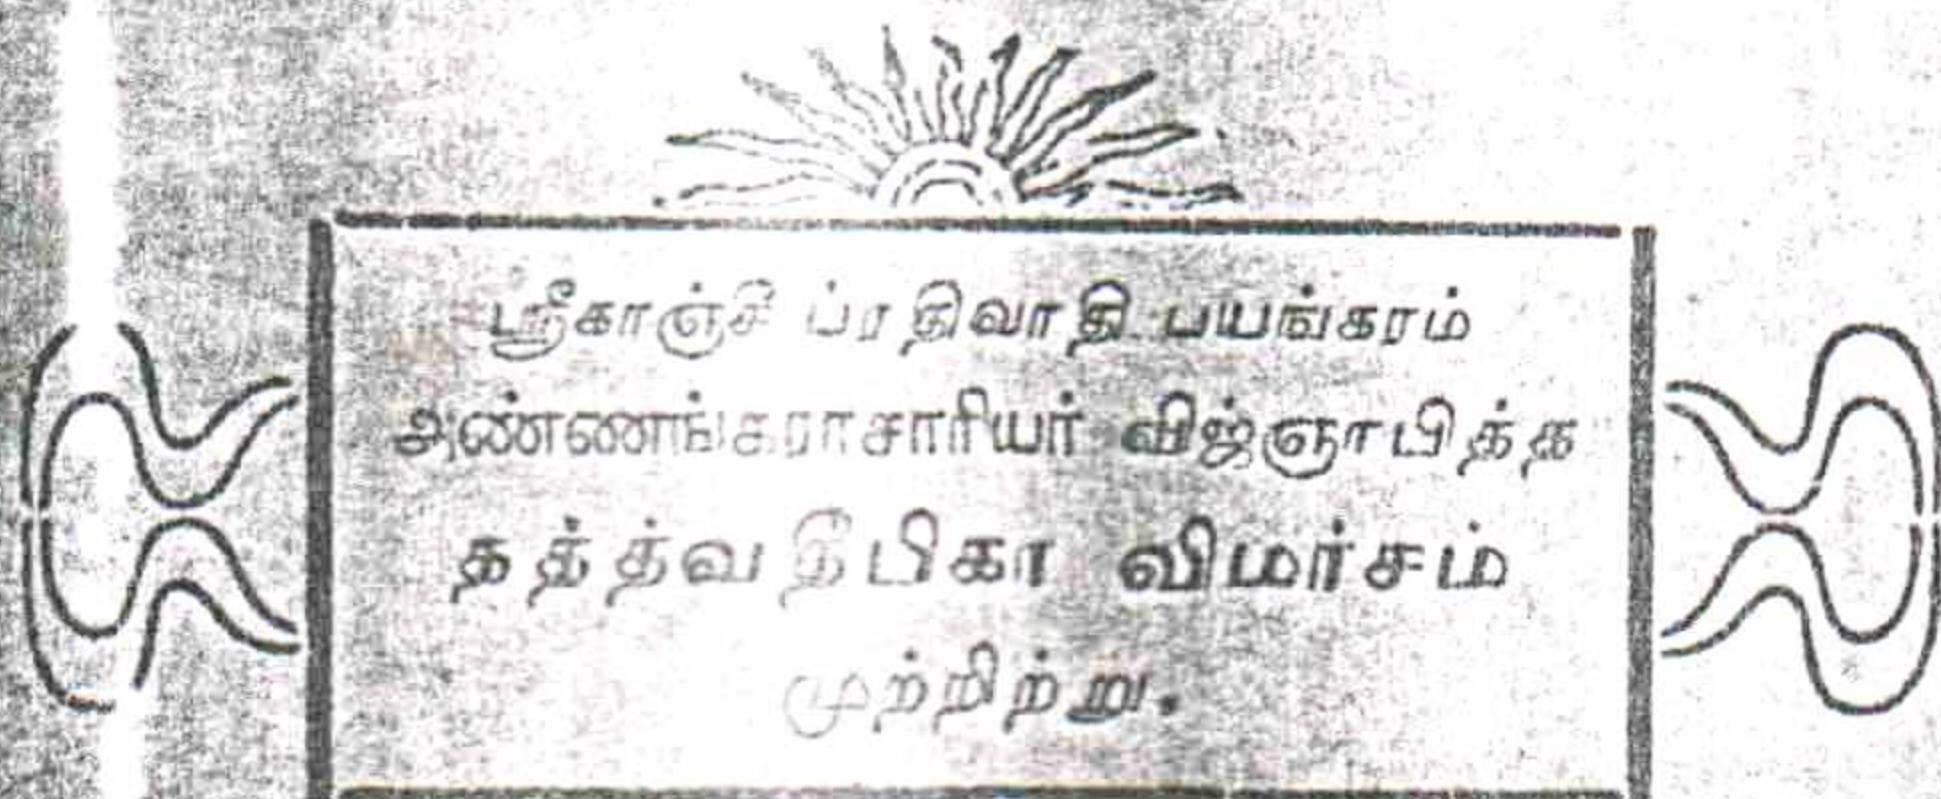 ஸ்ரீகாஞ்சீ ப்ரதிவாதி பயங்கரம்
அண்ணங்கராசாரியர் விஜ்ஞாபித்த
தத்த்வதீபிகா விமர்சம்
முற்றிற்று.